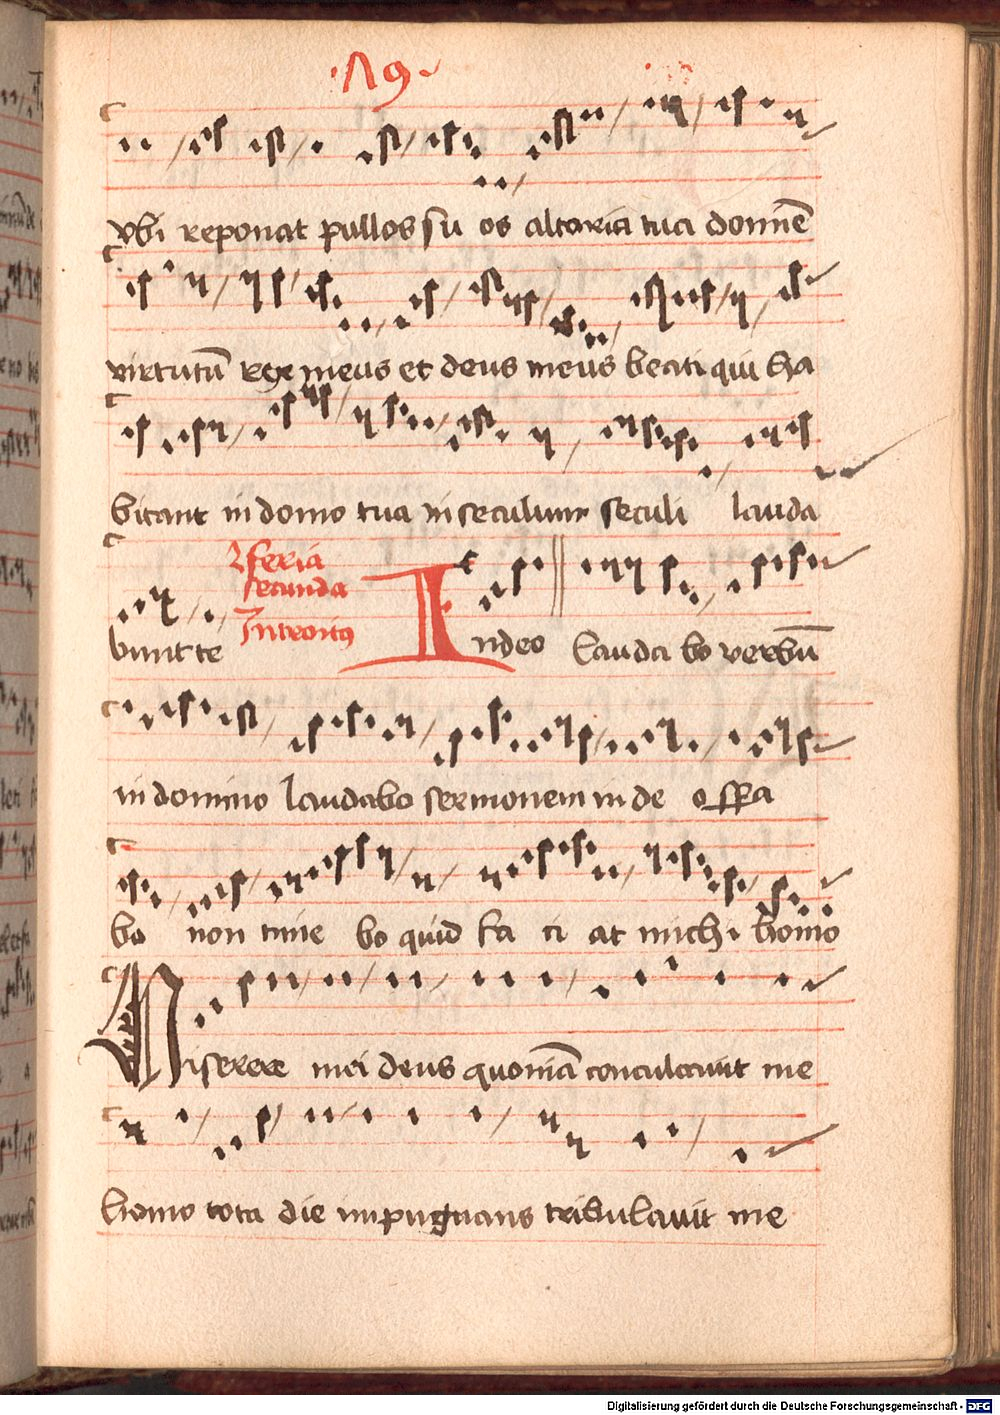 19
vbi reponat pullos su os altaria tua domīe
virtutū rex meus et deus meus beati qui ha
bitant in domo tua in seculum seculi lauda
feria
secunda
Introitus
bunt te In deo lauda bo verbū
in domino laudabo sermonem in de o spa
bo non time bo quid fa ci at michi homo
Miserere mei deus quoniā conculcauit me
homo tota die inpugnans tribulauit me
Digitalisierung gefördert durch die Deutsche Forschungsgemeinschaft - DFG